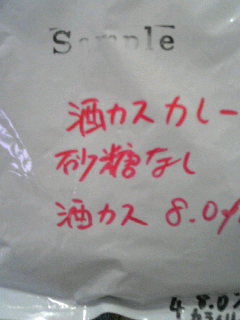 Sample
酒カスカレー
砂糖なし
酒カス 8.0%
4 8.0%